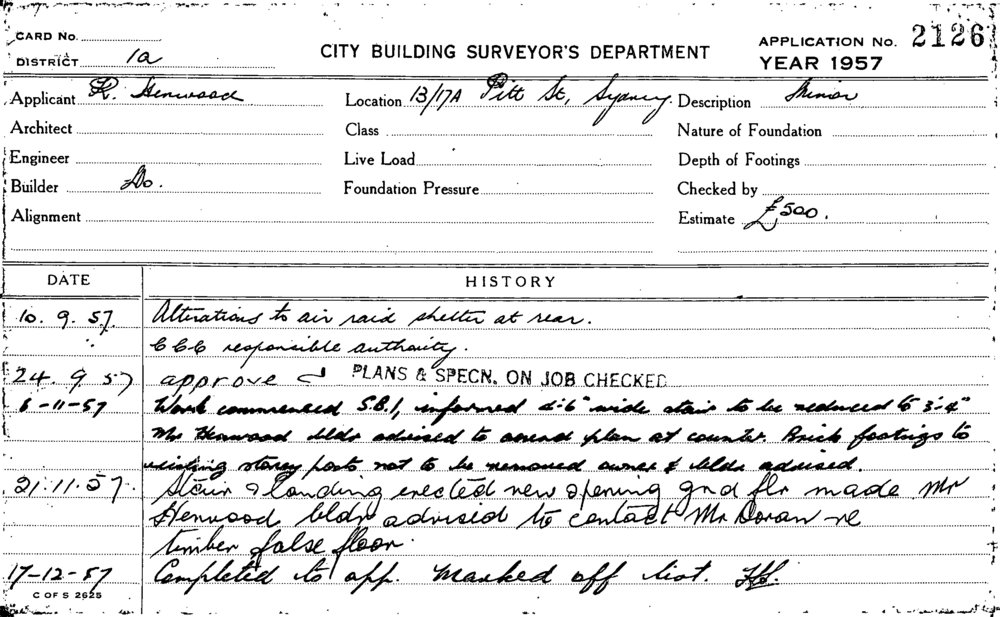 CARD No.
DISTRICT 1a
CITY BUILDING SURVEYOR'S DEPARTMENT
APPLICATION No. 2126
YEAR 1957
Applicant K. Henwood
Location 13/17A Pitt St, Sydney.
Description Minor
Architect
Class
Nature of Foundation
Engineer
Live Load
Depth of Footings
Builder Do.
Foundation Pressure
Checked by
Alignment
Estimate £500.
DATE HISTORY
10. 9. 57. Alterations to air raid shelter at rear.
CCC responsible authority.
24. 9. 57 approve PLANS & SPECN. ON JOB CHECKED
6-11-57 Work commenced S.B.1, informed 4'-6" wide stair to be reduced to 3'-4"
Mr Henwood bldr advised to amend plan at counter. Brick footings to
existing storey posts not to be removed owner & bldr advised.
21.11.57. Stair & landing erected new opening gnd flr made Mr
Henwood bldr advised to contact Mr Doran re
timber false floor.
17-12-57 Completed to app. Marked off list.
C OF S 2625